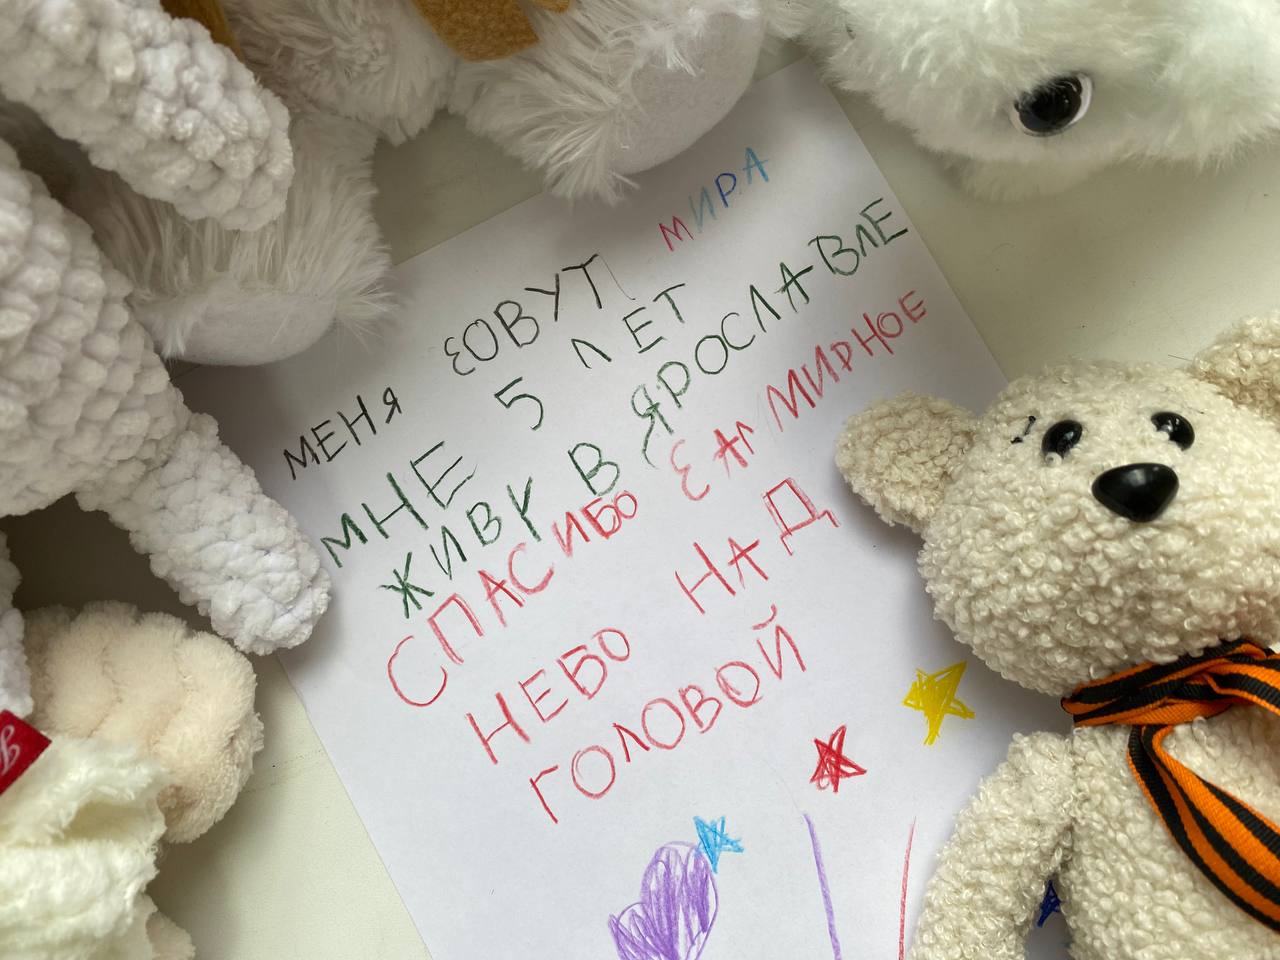 МЕНЯ ЗОВУТ МИРА
МНЕ 5 ЛЕТ
ЖИВУ В ЯРОСЛАВЛЕ
СПАСИБО ЗА МИРНОЕ
НЕБО НАД
ГОЛОВОЙ